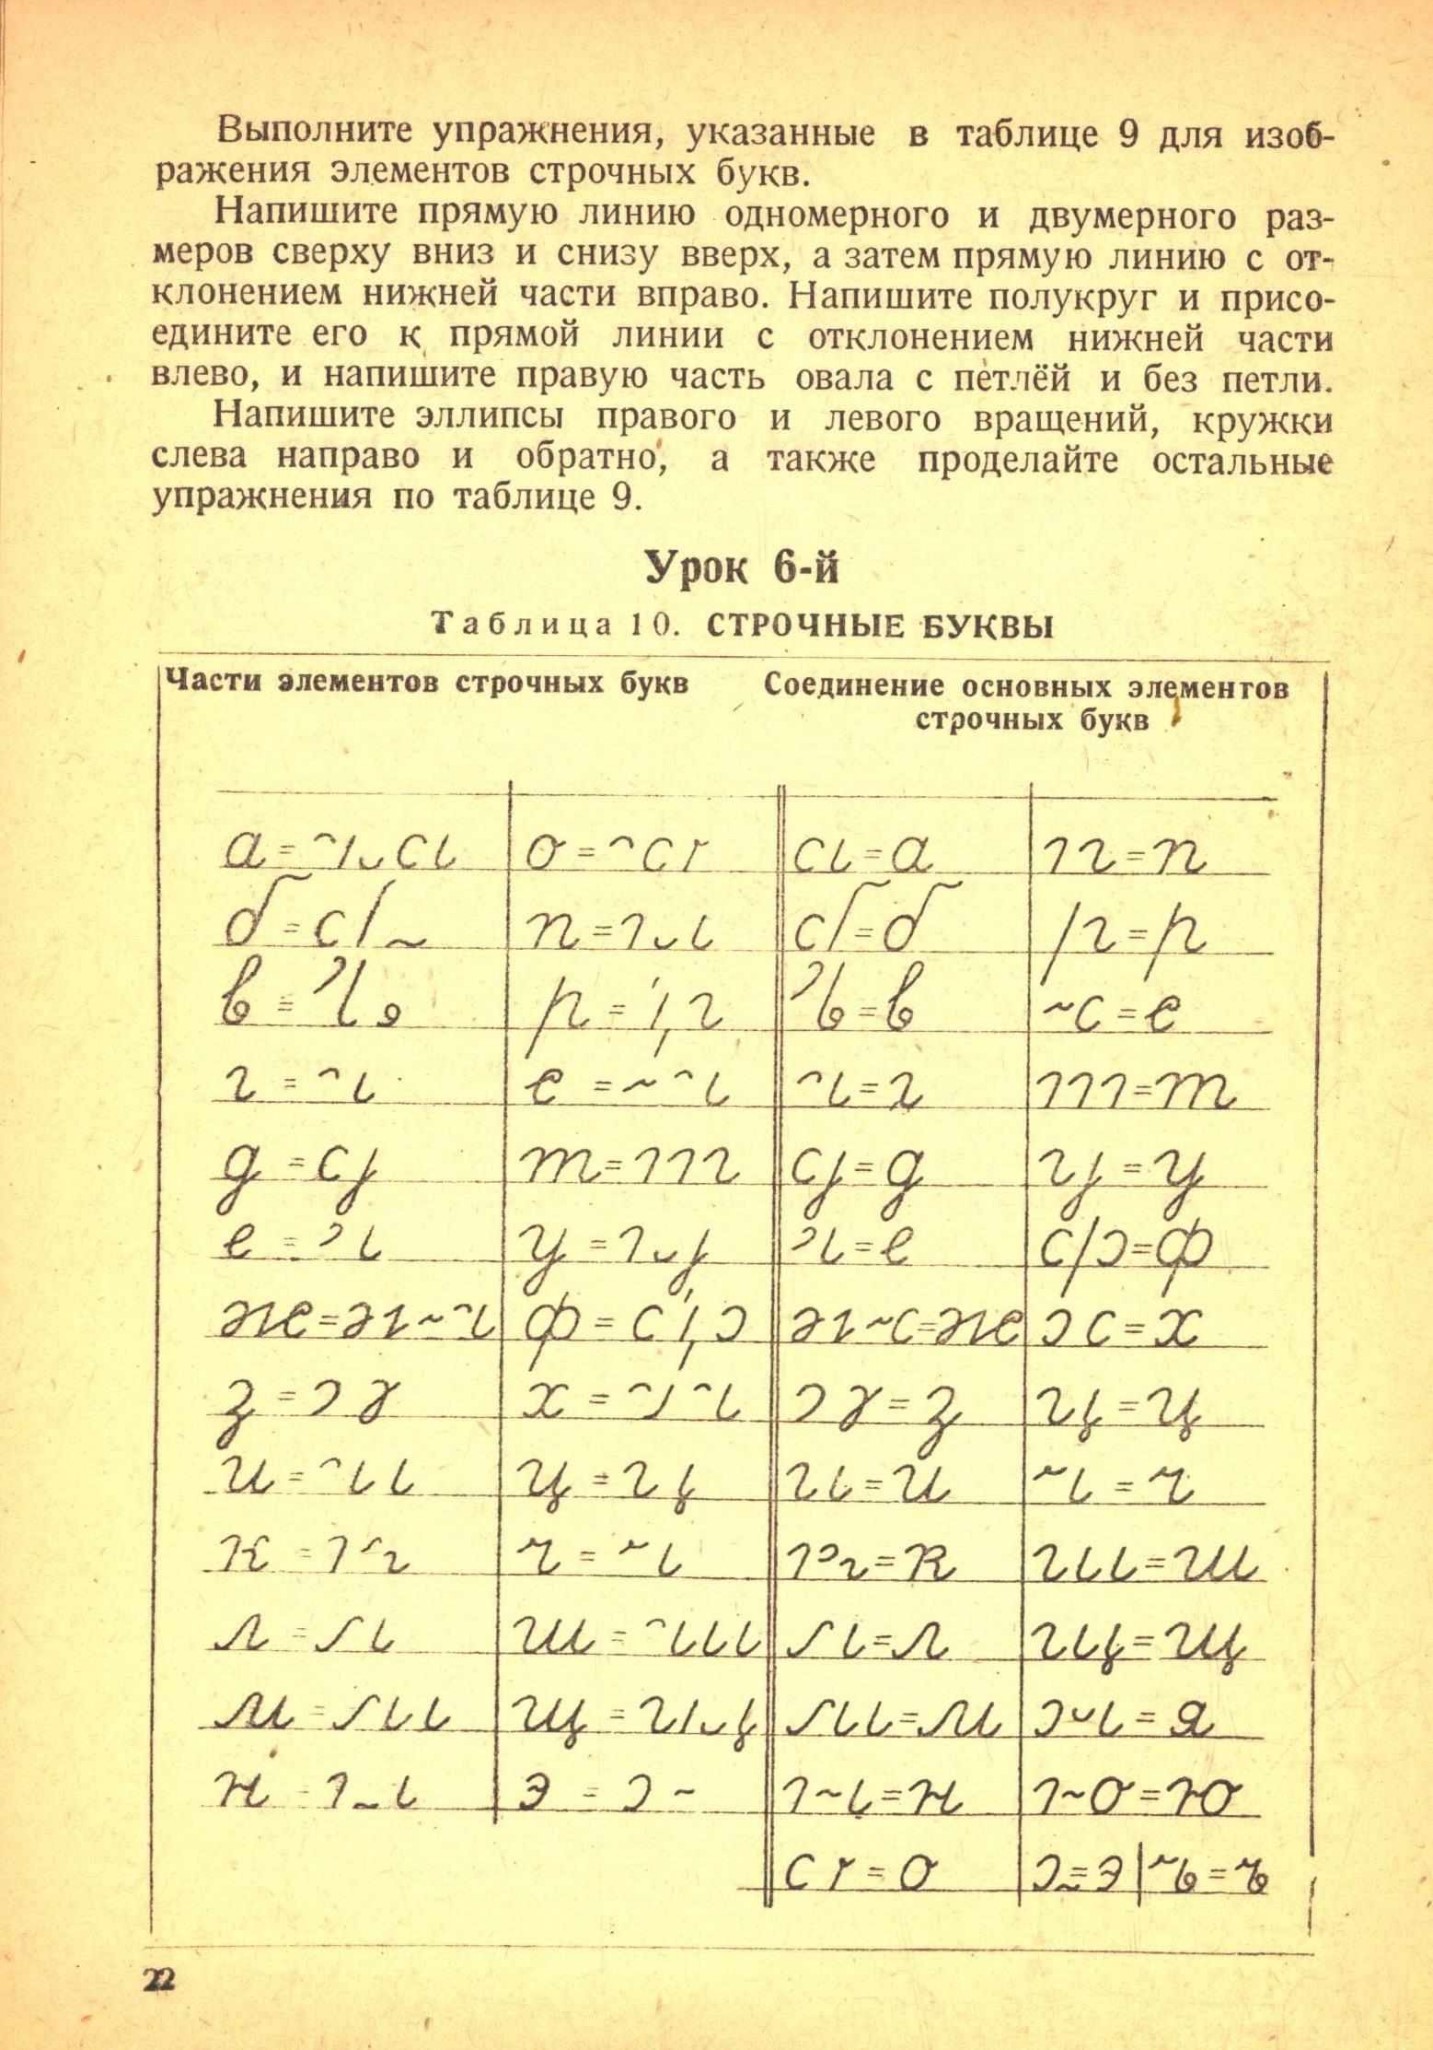 Выполните упражнения, указанные в таблице 9 для изоб-
ражения элементов строчных букв.
Напишите прямую линию одномерного и двумерного раз-
меров сверху вниз и снизу вверх, а затем прямую линию с от-
клонением нижней части вправо. Напишите полукруг и присо-
едините его к прямой линии с отклонением нижней части
влево, и напишите правую часть овала с петлёй и без петли.
Напишите эллипсы правого и левого вращений, кружки
слева направо и обратно, а также проделайте остальные
упражнения по таблице 9.
Урок 6-й
Таблица 10. СТРОЧНЫЕ БУКВЫ
Части элементов строчных букв Соединение основных элементов
строчных букв
а = о = = а = п
б = п = = б = р
в = р = = в = е
г = е = = г = т
д = т = = д = у
е = у = = е = ф
ж = ф = = ж = х
з = х = = з = ц
и = ц = = и = ч
к = ч = = к = ш
л = ш = = л = щ
м = щ = = м = я
н = э = = н = ю
= о = э = ъ
22